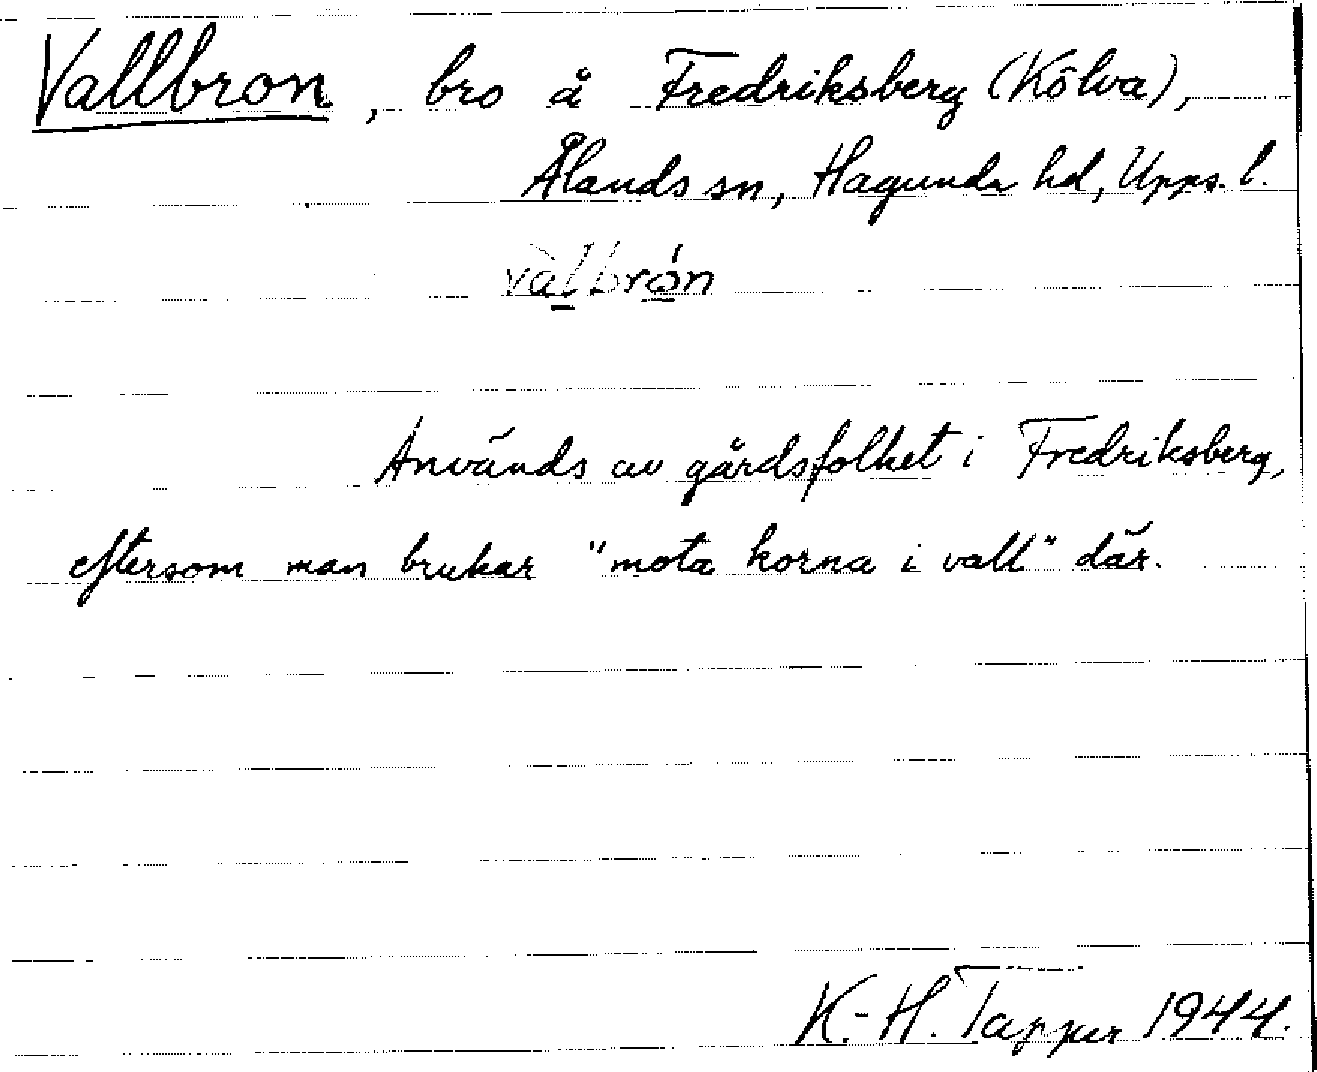 Vallbron, bro å Fredriksberg (Kölva),
Ålands sn, Hagunda hd, Upps. l.
vàlbrón
Används av gårdsfolket i Fredriksberg,
eftersom man brukar "mota korna i vall" där.
K.-H. Tapper 1944.